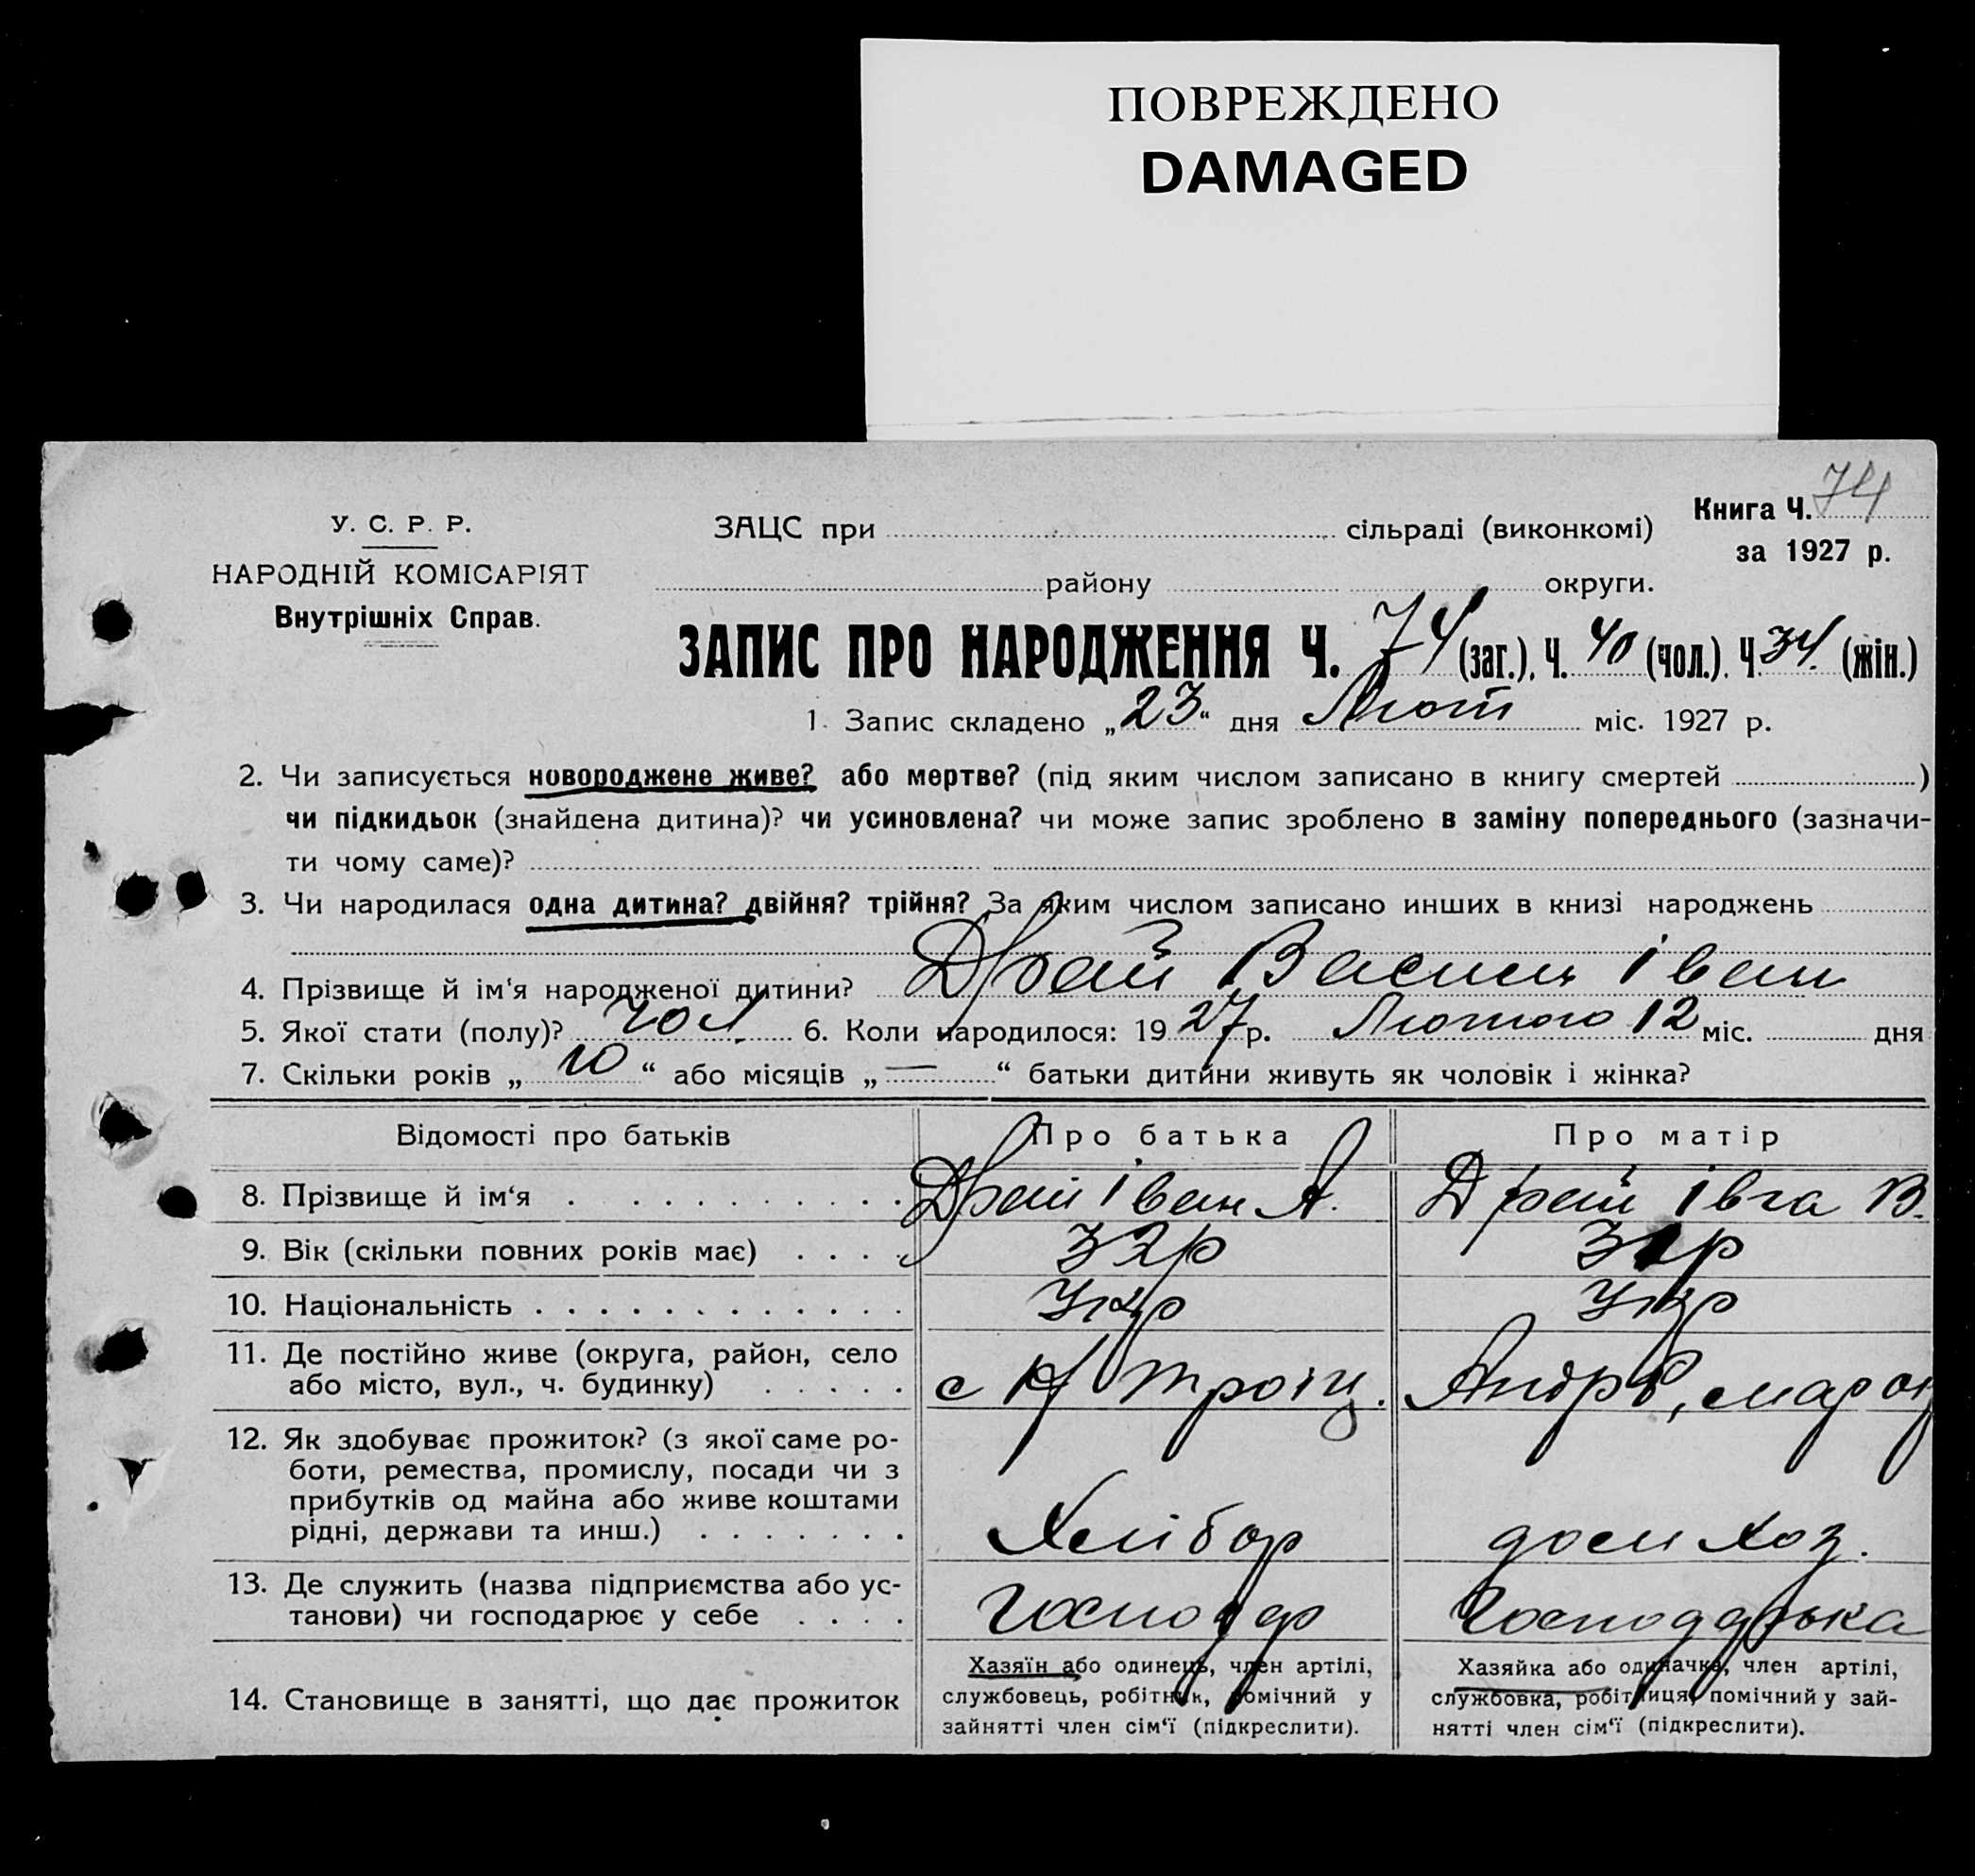 ПОВРЕЖДЕНО
DAMAGED
74
Книга Ч.
за 1927 р.
У. С. Р. Р.
НАРОДНІЙ КОМІСАРІЯТ
Внутрішніх Справ.
ЗАЦС при сільраді (виконкомі)
району округи.
ЗАПИС ПРО НАРОДЖЕННЯ Ч. 74 (заг.). Ч. 40 (чол.). Ч 34. (жін.)
1. Запис складено „23“ дня Лют міс. 1927 р.
2. Чи записується новороджене живе? або мертве? (під яким числом записано в книгу смертей )
чи підкидьок (знайдена дитина)? чи усиновлена? чи може запис зроблено в заміну попереднього (зазначи-
ти чому саме)?
3. Чи народилася одна дитина? двійня? трійня? За яким числом записано инших в книзі народжень
4. Прізвище й ім'я народженої дитини? Драй Василь Іван
5. Якої стати (полу)? чол. 6. Коли народилося: 1927 р. Лютого 12 міс. дня
7. Скільки років „10“ або місяців „—“ батьки дитини живуть як чоловік і жінка?
Відомості про батьків Про батька Про матір
8. Прізвище й ім‘я . . . . . . . . . Драй Іван А. Драй Івга В.
9. Вік (скільки повних років має) . . . . 32р 31р
10. Національність . . . . . . . . . . . . Укр Укр
11. Де постійно живе (округа, район, село
або місто, вул., ч. будинку) . . . . . с Н Троіц. Андр
12. Як здобуває прожиток? (з якої саме ро-
боти, ремества, промислу, посади чи з
прибутків од майна або живе коштами
рідні, держави та инш.) . . . . . . . Хлібор дом хоз.
13. Де служить (назва підприємства або ус-
танови) чи господарює у себе . . . . Господар Господарька
14. Становище в занятті, що дає прожиток
Хазяїн або одинець, член артілі,
службовець, робітник, помічний у
зайнятті член сім‘ї (підкреслити).
Хазяйка або одиначка, член артілі,
службовка, робітниця, помічний у зай-
нятті член сім‘ї (підкреслити).